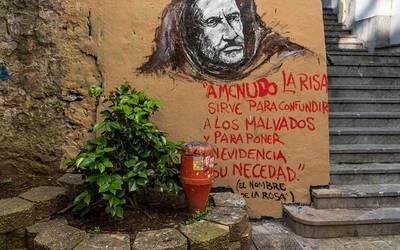 "A MENUDO LA RISA
SIRVE PARA CONFUNDIR
A LOS MALVADOS
Y PARA PONER
EN EVIDENCIA
SU NECEDAD."
(EL NOMBRE
DE LA ROSA)